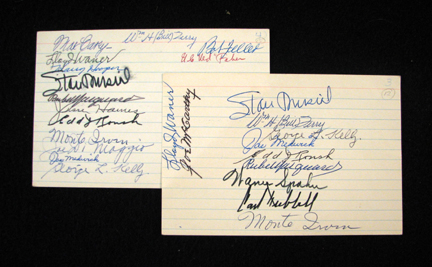 Max Carey
Wm H (Bill) Terry
Bob Feller
Lloyd Waner
Stan Musial
Rube Marquard
Jesse Haines
Edd J Roush
Monte Irvin
Joe Di Maggio
Joe Medwick
George L. Kelly
Stan Musial
Wm H (Bill) Terry
George L. Kelly
Joe Medwick
Edd J Roush
Rube Marquard
Warren Spahn
Carl Hubbell
Monte Irvin
Lloyd Waner
Joe McCarthy